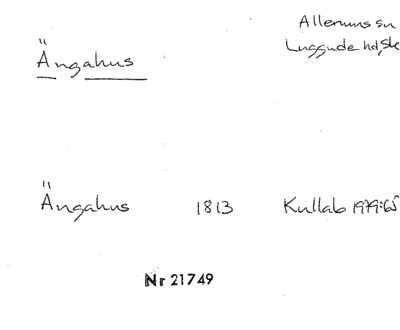 Allerums sn
Ängahus
Luggude hd, Sk
Ängahus 1813 Kullab 1979:65
Nr 21749